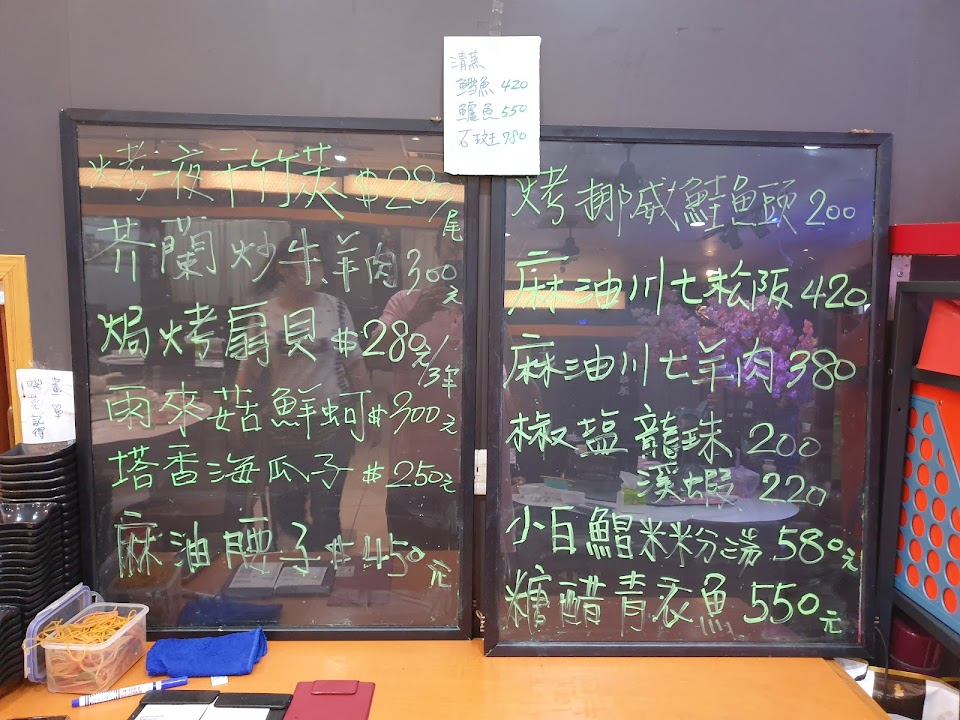 清蒸
鱈魚 420
鱸魚 550
石斑 780
烤一夜干竹莢 $280/尾
芥蘭炒牛羊肉 300元
焗烤扇貝 $280元/3隻
雨來菇鮮蚵 $300元
塔香海瓜子 $250元
麻油腰子 $450元
烤挪威鮭魚頭 200
麻油川七松阪 420
麻油川七羊肉 380
椒塩龍珠 200
溪蝦 220
小白鯧米粉湯 580元
糖醋青衣魚 550元
畫單
記得